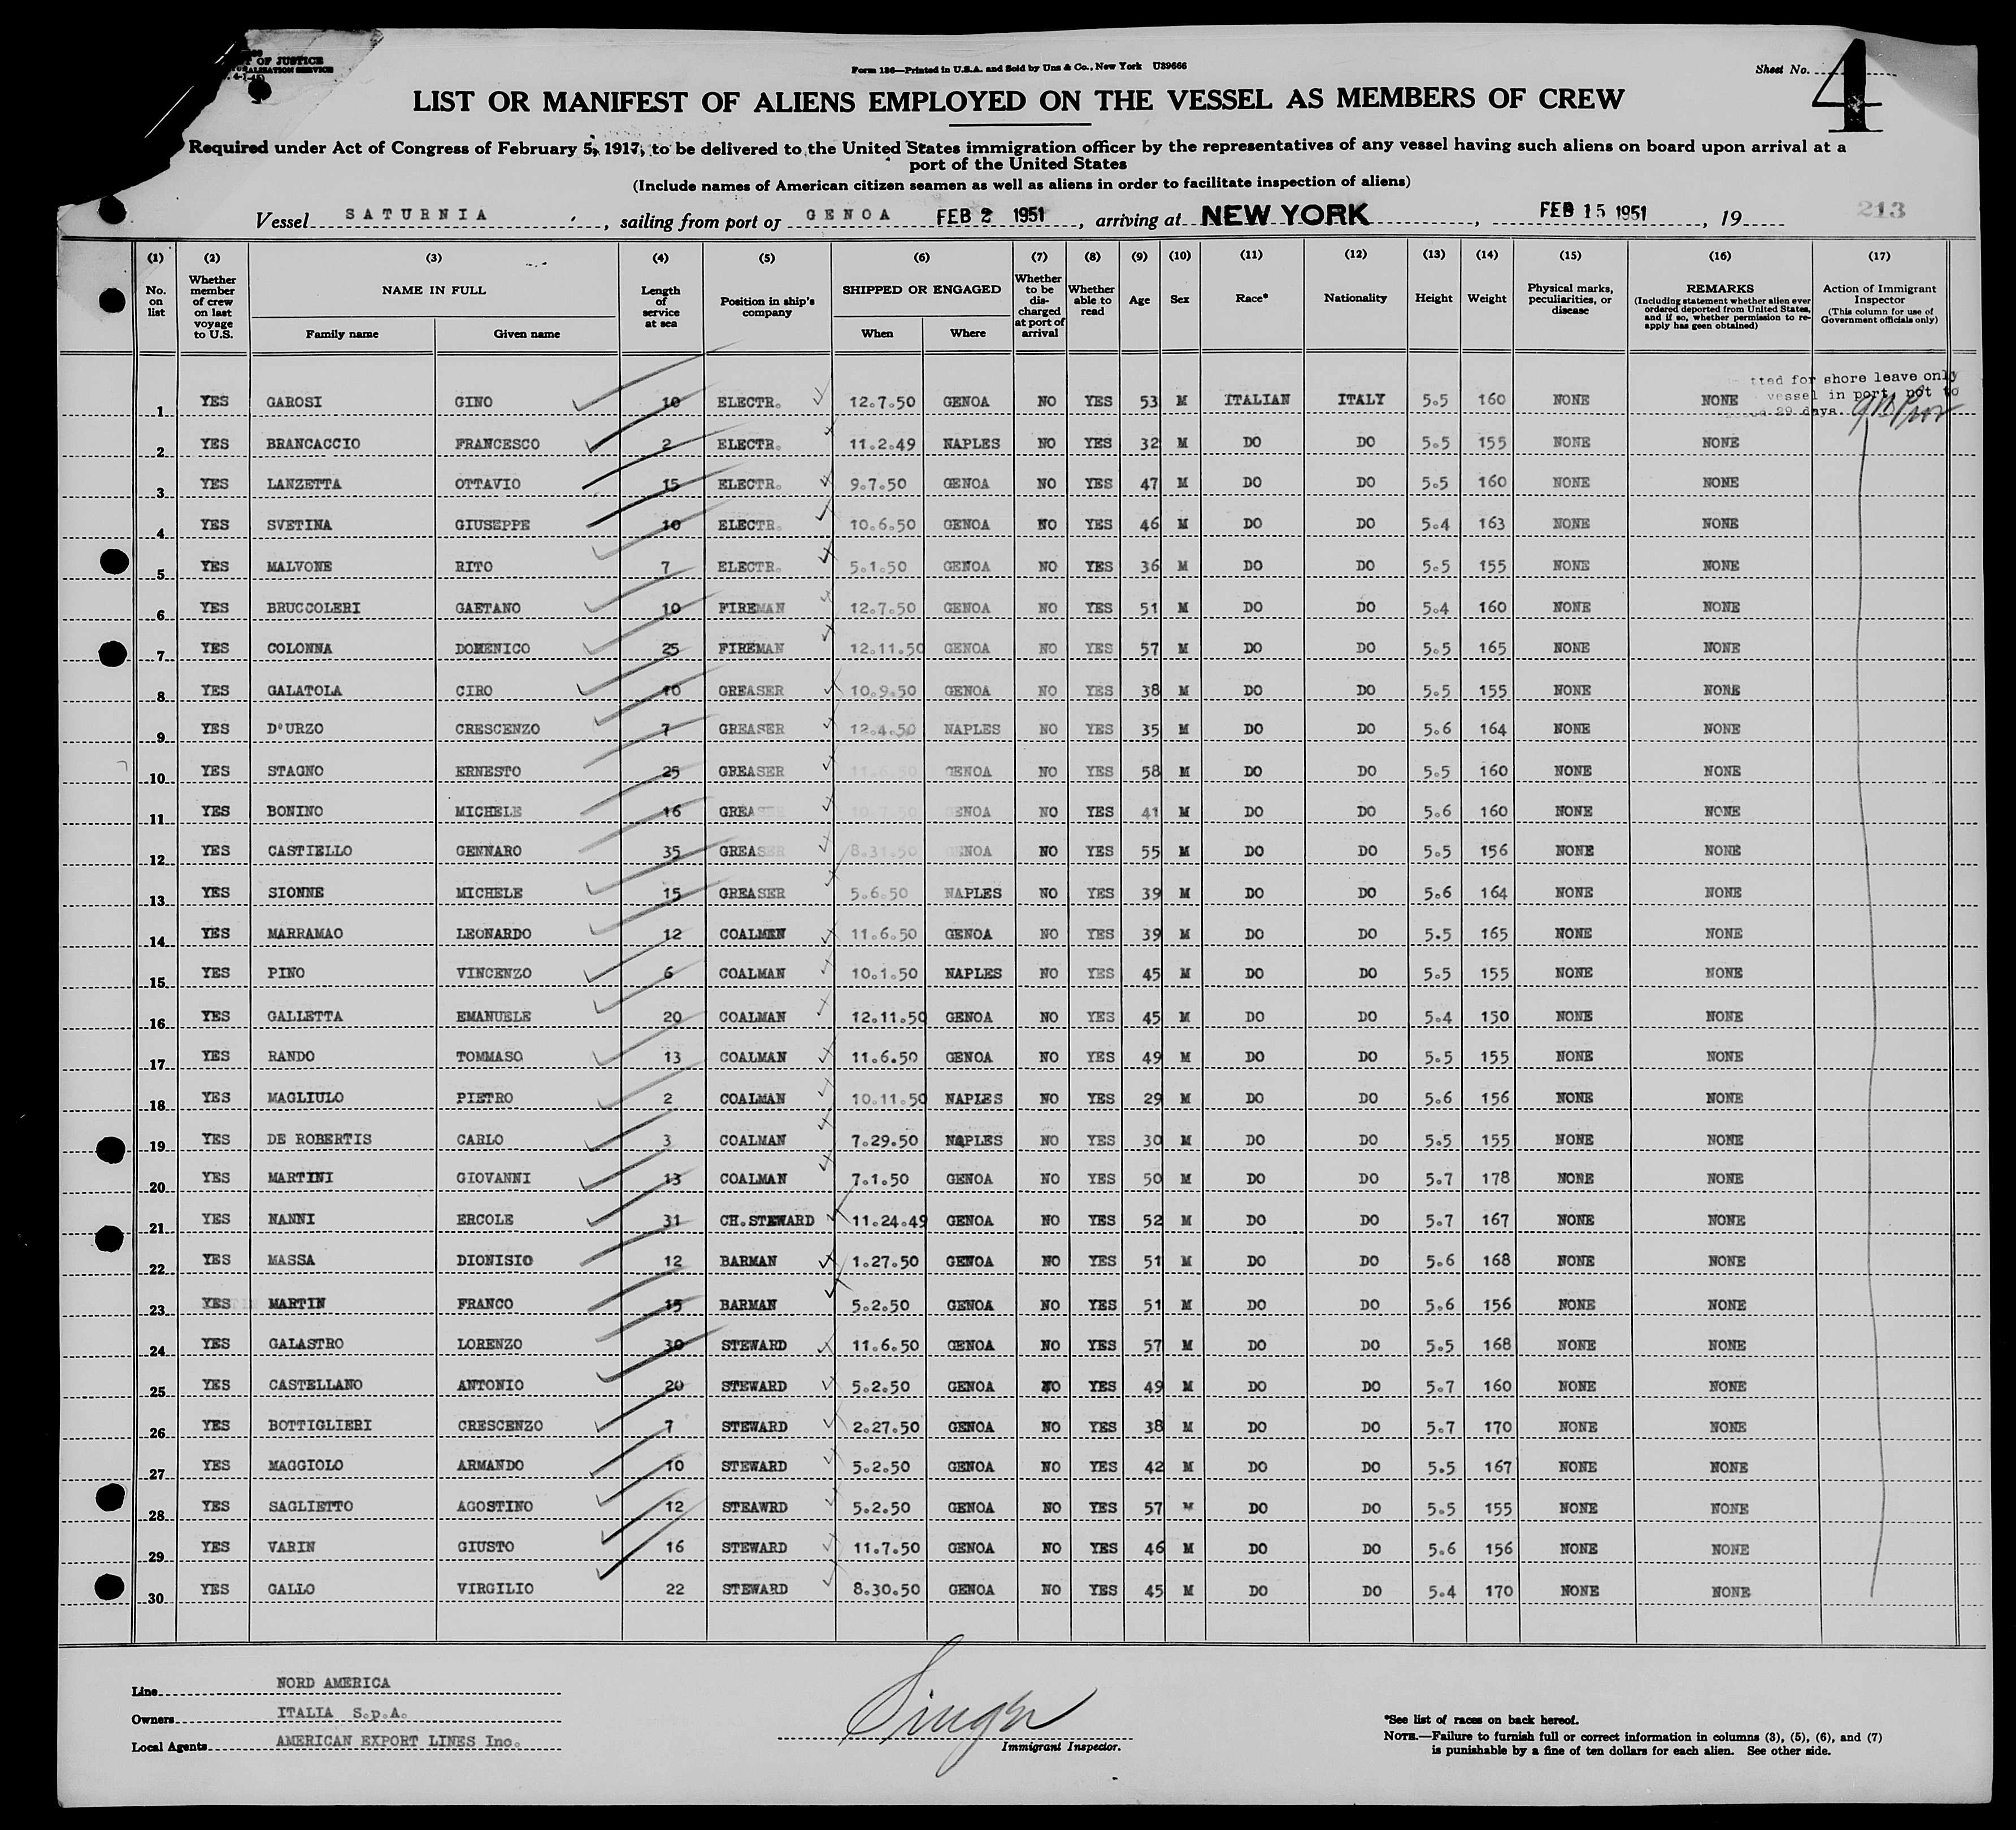 OF JUSTICE
Form 136—Printed in U.S.A. and Sold by Unz & Co., New York U39666
Sheet No. 4
LIST OR MANIFEST OF ALIENS EMPLOYED ON THE VESSEL AS MEMBERS OF CREW
Required under Act of Congress of February 5, 1917, to be delivered to the United States immigration officer by the representatives of any vessel having such aliens on board upon arrival at a
port of the United States
(Include names of American citizen seamen as well as aliens in order to facilitate inspection of aliens)
Vessel SATURNIA, sailing from port of GENOA FEB 2 1951, arriving at NEW YORK, FEB 15 1951, 19 213
(1) No. on list (2) Whether member of crew on last voyage to U.S. (3) NAME IN FULL Family name Given name (4) Length of service at sea (5) Position in ship's company (6) SHIPPED OR ENGAGED When Where (7) Whether to be discharged at port of arrival (8) Whether able to read (9) Age (10) Sex (11) Race* (12) Nationality (13) Height (14) Weight (15) Physical marks, peculiarities, or disease (16) REMARKS (Including statement whether alien ever ordered deported from United States, and if so, whether permission to re-apply has geen obtained) (17) Action of Immigrant Inspector (This column for use of Government officials only)
tted for shore leave only
vessel in port, not to
29 days.
1 YES GAROSI GINO 10 ELECTR. 12.7.50 GENOA NO YES 53 M ITALIAN ITALY 5.5 160 NONE NONE
2 YES BRANCACCIO FRANCESCO 2 ELECTR. 11.2.49 NAPLES NO YES 32 M DO DO 5.5 155 NONE NONE
3 YES LANZETTA OTTAVIO 15 ELECTR. 9.7.50 GENOA NO YES 47 M DO DO 5.5 160 NONE NONE
4 YES SVETINA GIUSEPPE 10 ELECTR. 10.6.50 GENOA NO YES 46 M DO DO 5.4 163 NONE NONE
5 YES MALVONE RITO 7 ELECTR. 5.1.50 GENOA NO YES 36 M DO DO 5.5 155 NONE NONE
6 YES BRUCCOLERI GAETANO 10 FIREMAN 12.7.50 GENOA NO YES 51 M DO DO 5.4 160 NONE NONE
7 YES COLONNA DOMENICO 25 FIREMAN 12.11.50 GENOA NO YES 57 M DO DO 5.5 165 NONE NONE
8 YES GALATOLA CIRO 10 GREASER 10.9.50 GENOA NO YES 38 M DO DO 5.5 155 NONE NONE
9 YES D'URZO CRESCENZO 7 GREASER 12.4.50 NAPLES NO YES 35 M DO DO 5.6 164 NONE NONE
10 YES STAGNO ERNESTO 25 GREASER 11.6.50 GENOA NO YES 58 M DO DO 5.5 160 NONE NONE
11 YES BONINO MICHELE 16 GREASER 10.7.50 GENOA NO YES 41 M DO DO 5.6 160 NONE NONE
12 YES CASTIELLO GENNARO 35 GREASER 8.31.50 GENOA NO YES 55 M DO DO 5.5 156 NONE NONE
13 YES SIONNE MICHELE 15 GREASER 5.6.50 NAPLES NO YES 39 M DO DO 5.6 164 NONE NONE
14 YES MARRAMAO LEONARDO 12 COALMEN 11.6.50 GENOA NO YES 39 M DO DO 5.5 165 NONE NONE
15 YES PINO VINCENZO 6 COALMAN 10.1.50 NAPLES NO YES 45 M DO DO 5.5 155 NONE NONE
16 YES GALLETTA EMANUELE 20 COALMAN 12.11.50 GENOA NO YES 45 M DO DO 5.4 150 NONE NONE
17 YES RANDO TOMMASO 13 COALMAN 11.6.50 GENOA NO YES 49 M DO DO 5.5 155 NONE NONE
18 YES MAGLIULO PIETRO 2 COALMAN 10.11.50 NAPLES NO YES 29 M DO DO 5.6 156 NONE NONE
19 YES DE ROBERTIS CARLO 3 COALMAN 7.29.50 NAPLES NO YES 30 M DO DO 5.5 155 NONE NONE
20 YES MARTINI GIOVANNI 13 COALMAN 7.1.50 GENOA NO YES 50 M DO DO 5.7 178 NONE NONE
21 YES NANNI ERCOLE 31 CH.STEWARD 11.24.49 GENOA NO YES 52 M DO DO 5.7 167 NONE NONE
22 YES MASSA DIONISIO 12 BARMAN 1.27.50 GENOA NO YES 51 M DO DO 5.6 168 NONE NONE
23 YES MARTIN FRANCO 15 BARMAN 5.2.50 GENOA NO YES 51 M DO DO 5.6 156 NONE NONE
24 YES GALASTRO LORENZO 30 STEWARD 11.6.50 GENOA NO YES 57 M DO DO 5.5 168 NONE NONE
25 YES CASTELLANO ANTONIO 20 STEWARD 5.2.50 GENOA NO YES 49 M DO DO 5.7 160 NONE NONE
26 YES BOTTIGLIERI CRESCENZO 7 STEWARD 2.27.50 GENOA NO YES 38 M DO DO 5.7 170 NONE NONE
27 YES MAGGIOLO ARMANDO 10 STEWARD 5.2.50 GENOA NO YES 42 M DO DO 5.5 167 NONE NONE
28 YES SAGLIETTO AGOSTINO 12 STEAWRD 5.2.50 GENOA NO YES 57 M DO DO 5.5 155 NONE NONE
29 YES VARIN GIUSTO 16 STEWARD 11.7.50 GENOA NO YES 46 M DO DO 5.6 156 NONE NONE
30 YES GALLO VIRGILIO 22 STEWARD 8.30.50 GENOA NO YES 45 M DO DO 5.4 170 NONE NONE
Line NORD AMERICA
Owners ITALIA S.p.A.
Local Agents AMERICAN EXPORT LINES Inc.
Immigrant Inspector.
*See list of races on back hereof.
NOTE.—Failure to furnish full or correct information in columns (3), (5), (6), and (7)
is punishable by a fine of ten dollars for each alien. See other side.